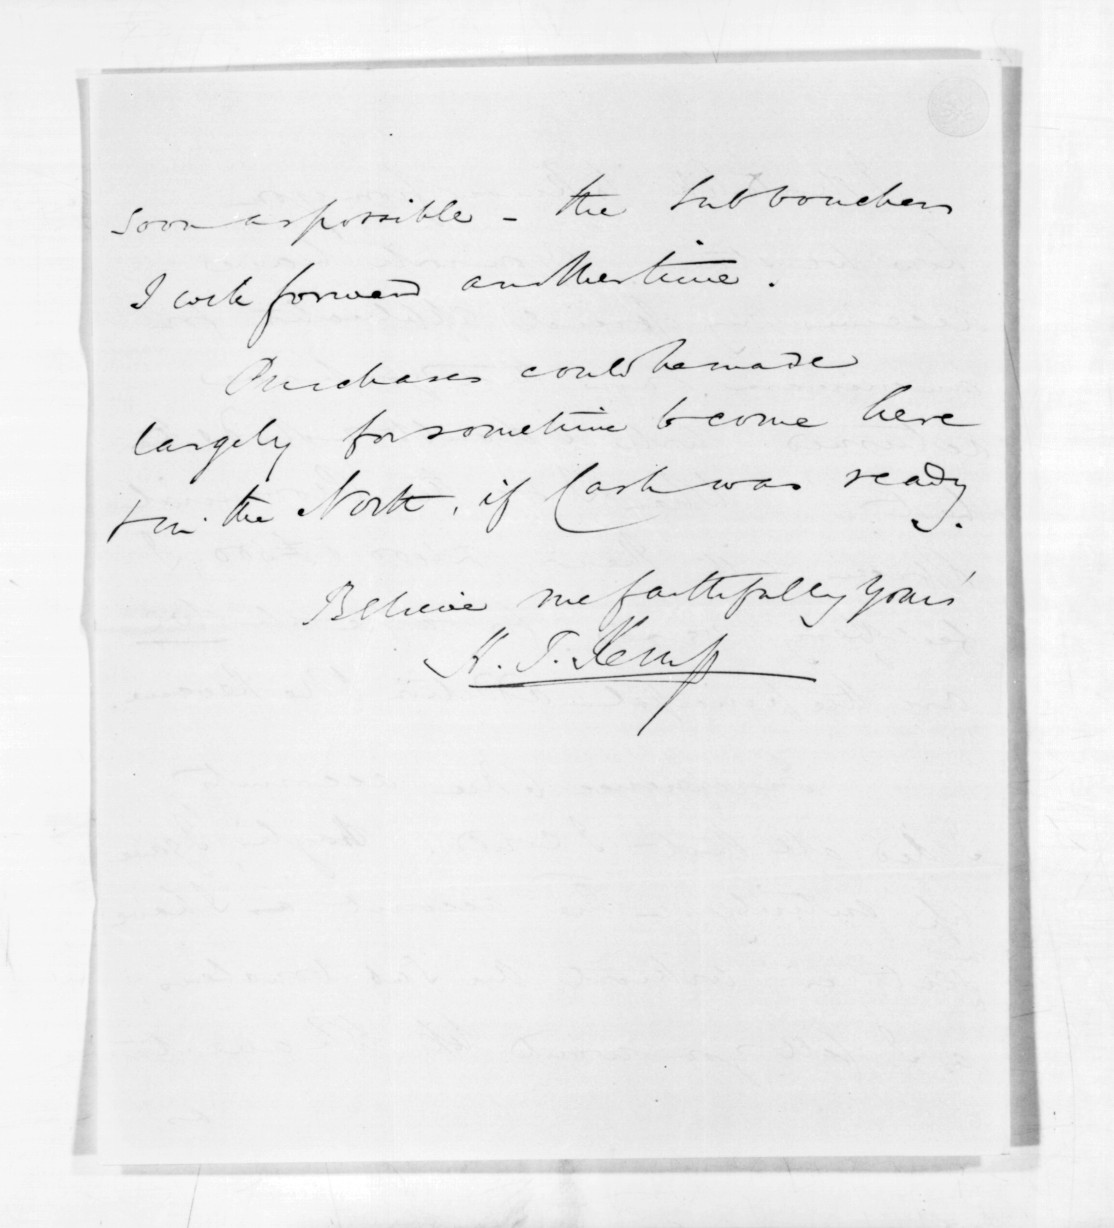 soon as possible - the Subvouchers
I will forward another time.
Purchases could be made
largely for some time to come here
+ in the North, if Cash was ready.
Believe me faithfully Yours
H. T. Kemp